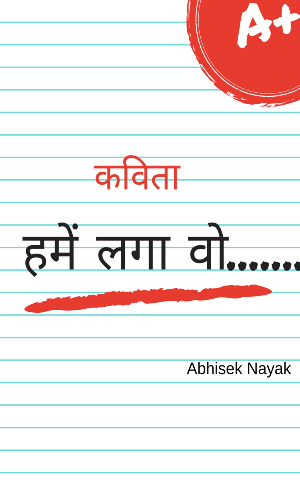 A+
कविता
हमें लगा वो........
Abhisek Nayak